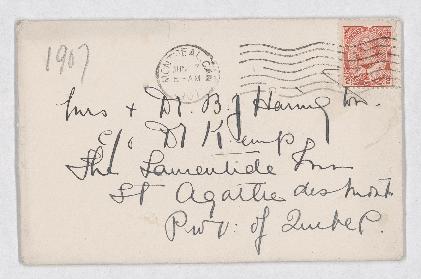 1907
MONTREAL CAN
AM
Mrs & Dr. B J Harrington.
C/o Dr Kemp
The Laurentide Inn
St Agathe des Monts
Prov: of Quebec.